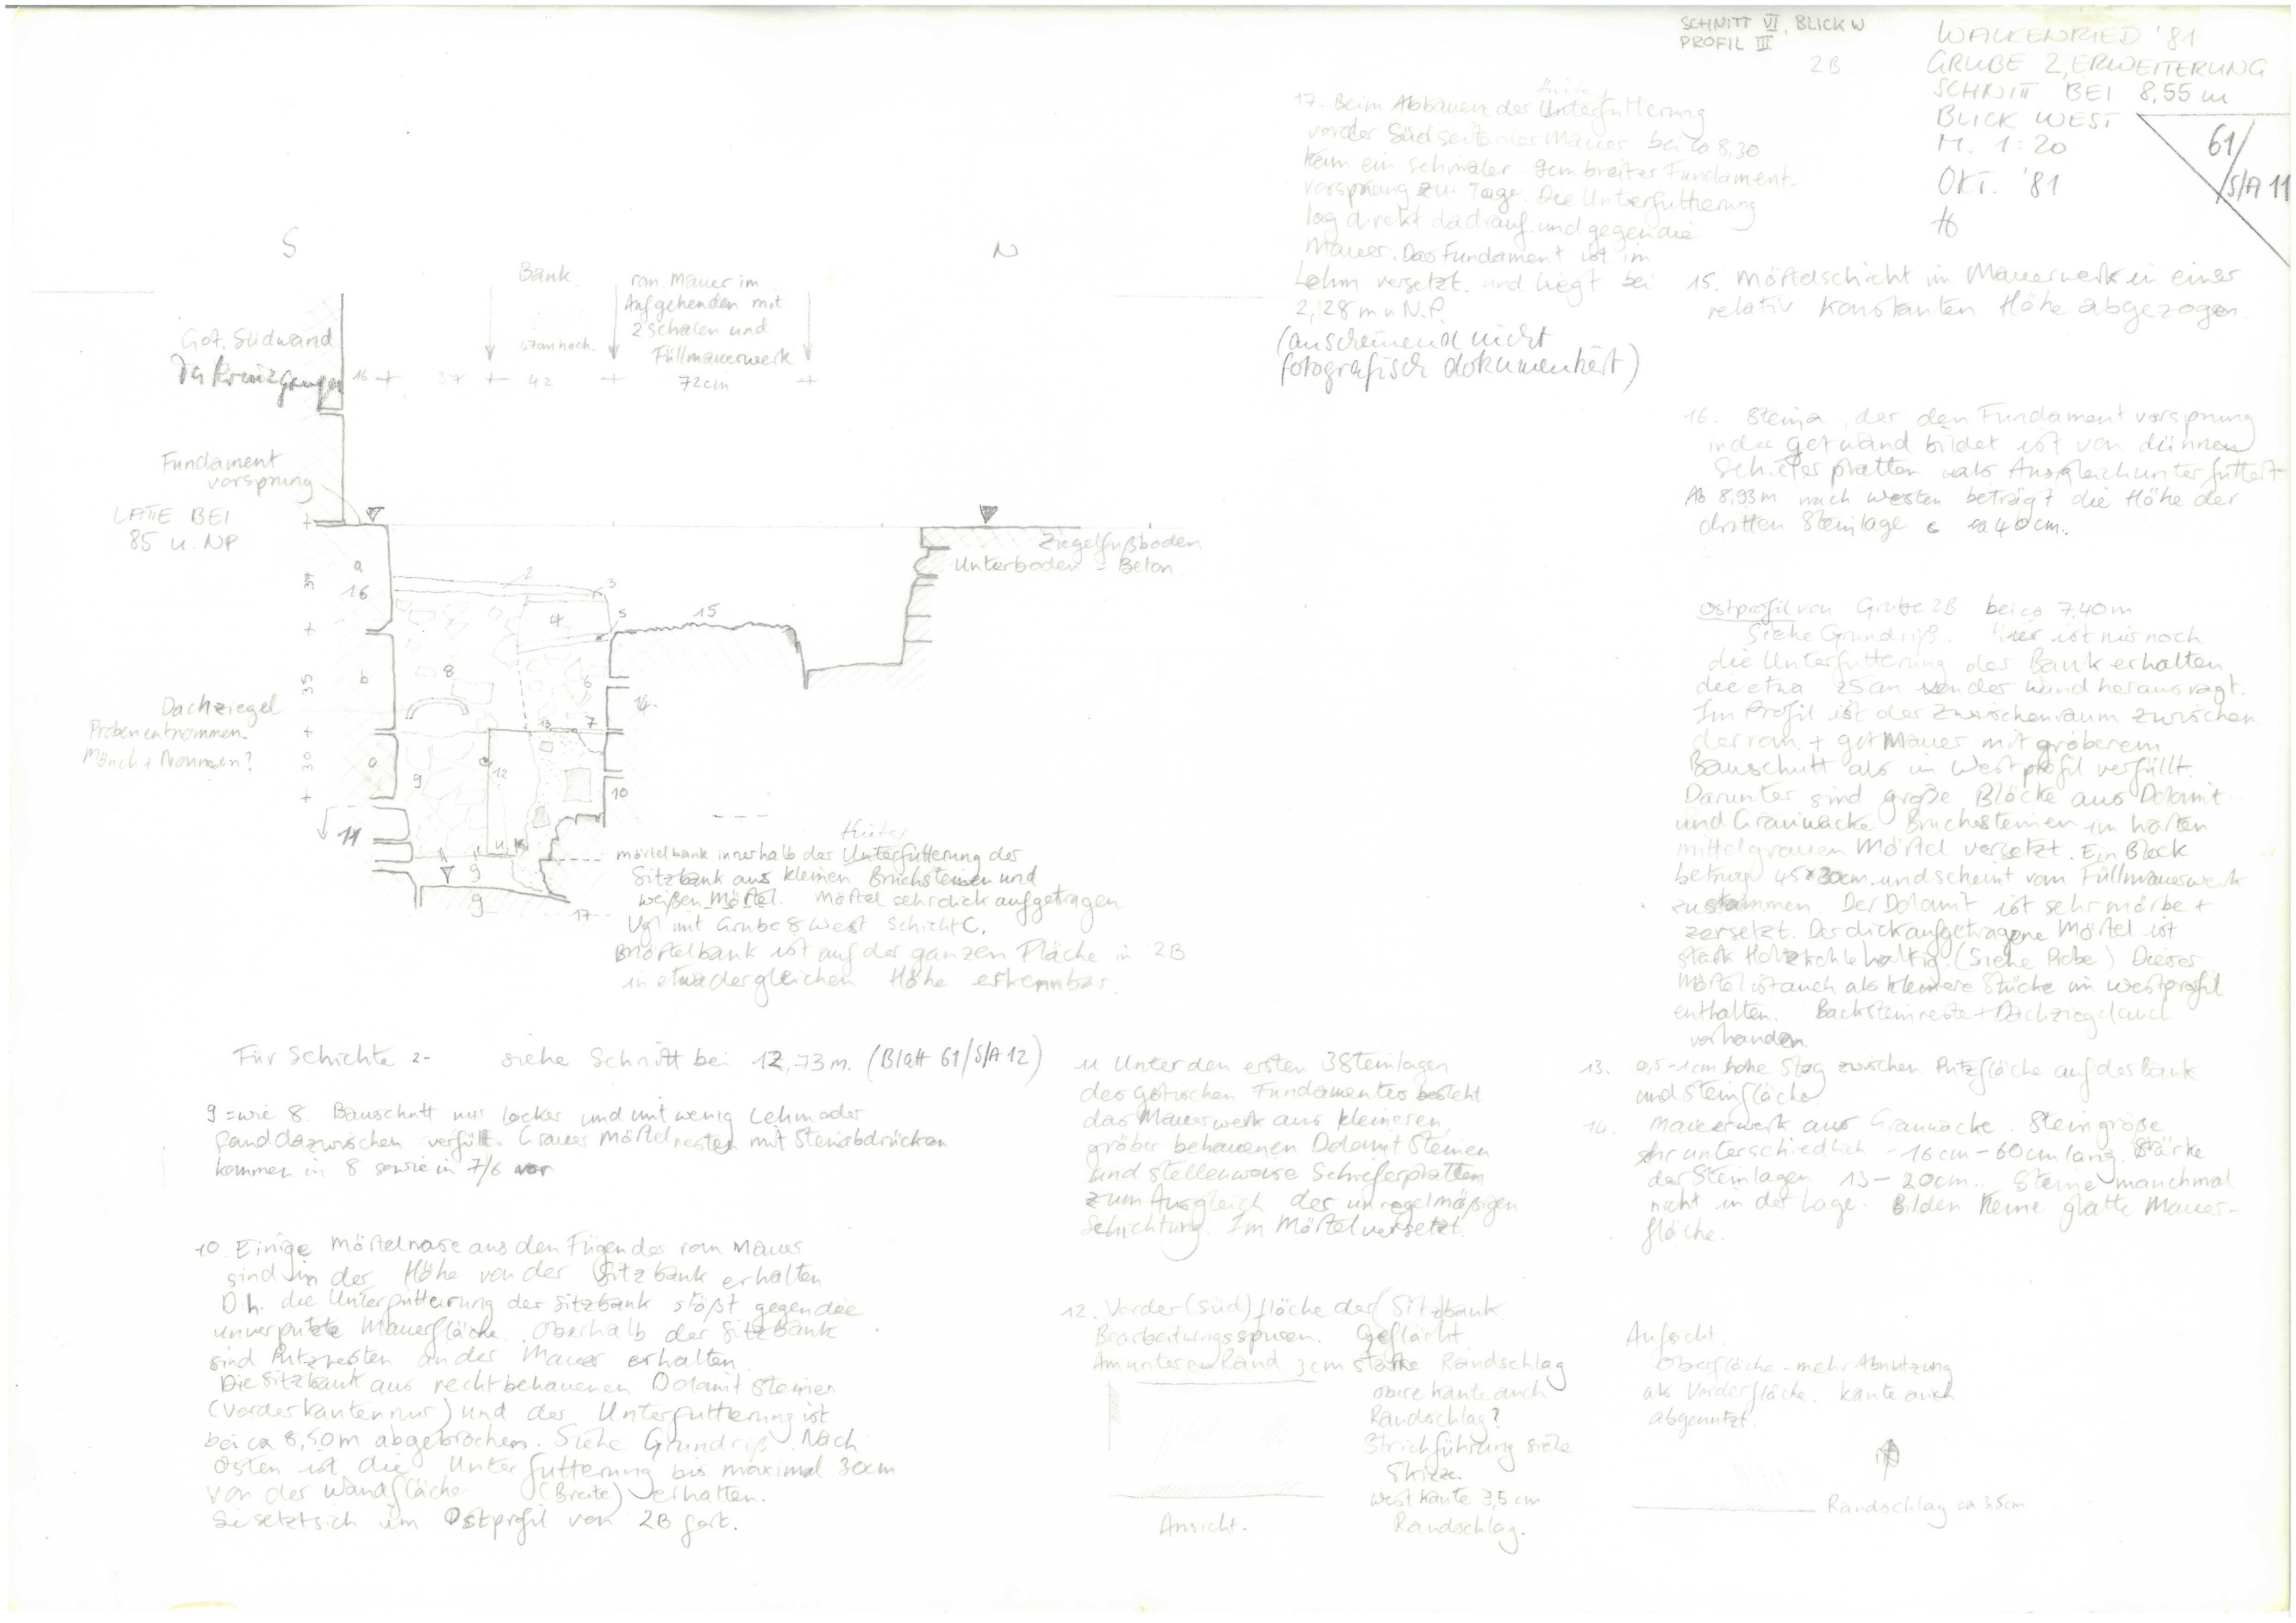 SCHNITT VI, BLICK W
PROFIL III
2B
WALKENRIED '81
GRUBE 2, ERWEITERUNG
SCHNITT BEI 8,55 m
BLICK WEST
M. 1:20
OKT. '81
61/
S/A 11
17. Beim Abbauen der Unterfutterung
Hinter
vor der Südseite der Mauer bei ca 8,30
kam ein schmaler 9cm breiter Fundament-
vorsprung zu Tage. Die Unterfutterung
lag direkt dadrauf und gegen die
Mauer. Das Fundament ist im
Lehm versetzt und liegt bei
2,28 m u N.P.
(anscheinend nicht
fotografisch dokumentiert)
15. Mörtelschicht im Mauerwerk in einer
relativ konstanten Höhe abgezogen.
16. Stein a, der den Fundamentvorsprung
in der Got wand bildet ist von dünnen
Schieferplatten als Ausgleich unterfuttert
Ab 8,93m nach Westen beträgt die Höhe der
dritten Steinlage ca 40cm.
Ostprofil von Grube 2B bei ca 7,40m
Siehe Grundriß. Hier ist nur noch
die Unterfutterung der Bank erhalten
die etwa 25cm von der Wand herausragt.
Im Profil ist der Zwischenraum zwischen
der rom. + got Mauer mit gröberem
Bauschutt als im Westprofil verfüllt.
Darunter sind große Blöcke aus Dolomit
und Grauwacke Bruchsteinen im harten
mittelgrauen Mörtel versetzt. Ein Block
betrug 45x30cm und scheint vom Füllmauerwerk
zu stammen. Der Dolomit ist sehr mörbe +
zersetzt. Der dick aufgetragene Mörtel ist
stark Holzkohle haltig. (Siehe Probe) Dieser
Mörtel ist auch als kleinere Stücke im Westprofil
enthalten. Backsteinreste + Dachziegel auch
vorhanden.
S
N
Bank
47cm hoch.
rom. Mauer im
Aufgehenden mit
2 Schalen und
Füllmauerwerk
Got. Südwand
Des Kreuzganges
16 + 37 + 42 + 72cm +
Fundament
vorsprung
LATTE BEI
85 u. NP
Ziegelfußboden
Unterboden - Beton
37
35
30
a
16
b
2
3
4
5
15
8
6
14
13
7
Dachziegel
Proben entnommen.
Mönch + Nonnen?
9
12
10
11
9
g
17
Hinter
Mörtelbank innerhalb der Unterfütterung der
Sitzbank aus kleinen Bruchsteinen und
weißen Mörtel. Mörtel sehr dick aufgetragen
Vgl mit Grube 8 West Schicht C.
Mörtelbank ist auf der ganzen Fläche in 2B
in etwa der gleichen Höhe erkennbar.
Für Schichte 2- siehe Schnitt bei 12,73m. (Blatt 61/S/A 12)
9 = wie 8. Bauschutt nur locker und mit wenig Lehm oder
Sand dazwischen verfüllt. Grauer Mörtelresten mit Steinabdrücken
kommen in 8 sowie in 7/6 vor
10. Einige Mörtelnase aus den Fugen der rom Mauer
sind in der Höhe von der Sitzbank erhalten
D.h. die Unterfütterung der Sitzbank stößt gegen die
unverputzte Mauerfläche. Oberhalb der Sitzbank
sind Putzresten an der Mauer erhalten.
Die Sitzbank aus recht behauenen Dolomit Steinen
(Vorderkanten nur) und der Unterfutterung ist
bei ca 8,50m abgebrochen. Siehe Grundriß. Nach
Osten ist die Unterfutterung bis maximal 30cm
von der Wandfläche (Breite) erhalten.
Sie setzt sich im Ostprofil von 2B fort.
11 Unter den ersten 3 Steinlagen
des gotischen Fundamentes besteht
das Mauerwerk aus kleineren,
gröber behauenen Dolomit Steinen
und stellenweise Schieferplatten
zum Ausgleich der unregelmäßigen
Schichtung. Im Mörtel versetzt.
12. Vorder (Süd) fläche der Sitzbank.
Bearbeitungsspuren. Geflächt
Am unteren Rand 3cm starke Randschlag
obere Kante auch
Randschlag?
Strichführung siehe
Skizze.
Westkante 3,5 cm
Randschlag.
Ansicht.
13. 0,5-1cm hohe Steg zwischen Putzfläche auf der Bank
und Steinfläche.
14. Mauerwerk aus Grauwacke. Steingröße
sehr unterschiedlich - 16cm - 60cm lang. Stärke
der Steinlagen 13-20cm. Steine manchmal
nicht in der Lage. Bilden keine glatte Mauer-
fläche.
Aufsicht.
Oberfläche - mehr Abnutzung
als Vorderfläche. Kante auch
abgenutzt.
Randschlag ca 3,5cm